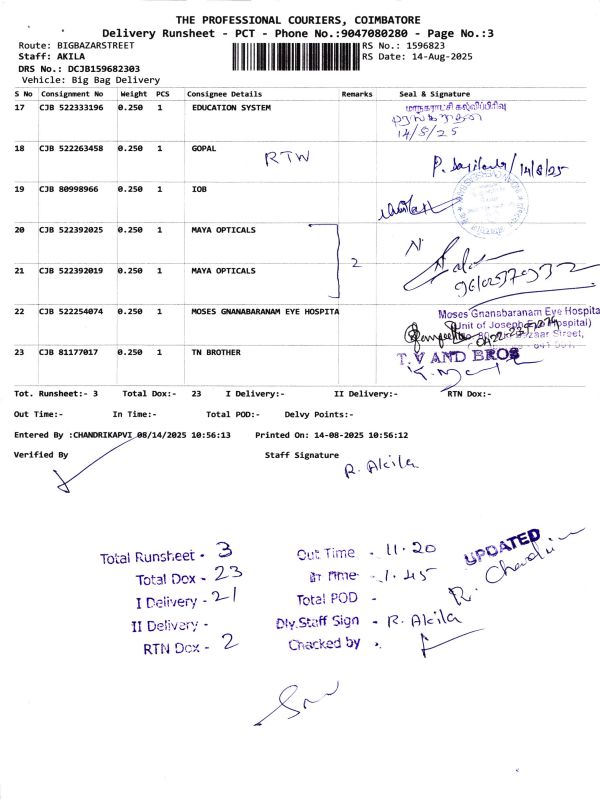 THE PROFESSIONAL COURIERS, COIMBATORE
Delivery Runsheet - PCT - Phone No.:9047080280 - Page No.:3
Route: BIGBAZARSTREET RS No.: 1596823
Staff: AKILA RS Date: 14-Aug-2025
DRS No.: DCJB159682303
Vehicle: Big Bag Delivery
S No Consignment No Weight PCS Consignee Details Remarks Seal & Signature
17 CJB 522333196 0.250 1 EDUCATION SYSTEM
14/8/25
18 CJB 522263458 0.250 1 GOPAL RTW
14/8/25
19 CJB 80998966 0.250 1 IOB
20 CJB 522392025 0.250 1 MAYA OPTICALS
2
21 CJB 522392019 0.250 1 MAYA OPTICALS
22 CJB 522254074 0.250 1 MOSES GNANABARANAM EYE HOSPITA
Moses Gnanabaranam Eye Hospita
23 CJB 81177017 0.250 1 TN BROTHER
T.V AND BROS
Tot. Runsheet:- 3 Total Dox:- 23 I Delivery:- II Delivery:- RTN Dox:-
Out Time:- In Time:- Total POD:- Delvy Points:-
Entered By :CHANDRIKAPVI 08/14/2025 10:56:13 Printed On: 14-08-2025 10:56:12
Verified By Staff Signature
R. Akila
Total Runsheet - 3 Out Time - 11.20 UPDATED
Total Dox - 23 In Time - 1.45
I Delivery - 21 Total POD -
II Delivery - Dly.Staff Sign - R. Akila
RTN Dox - 2 Chacked by -